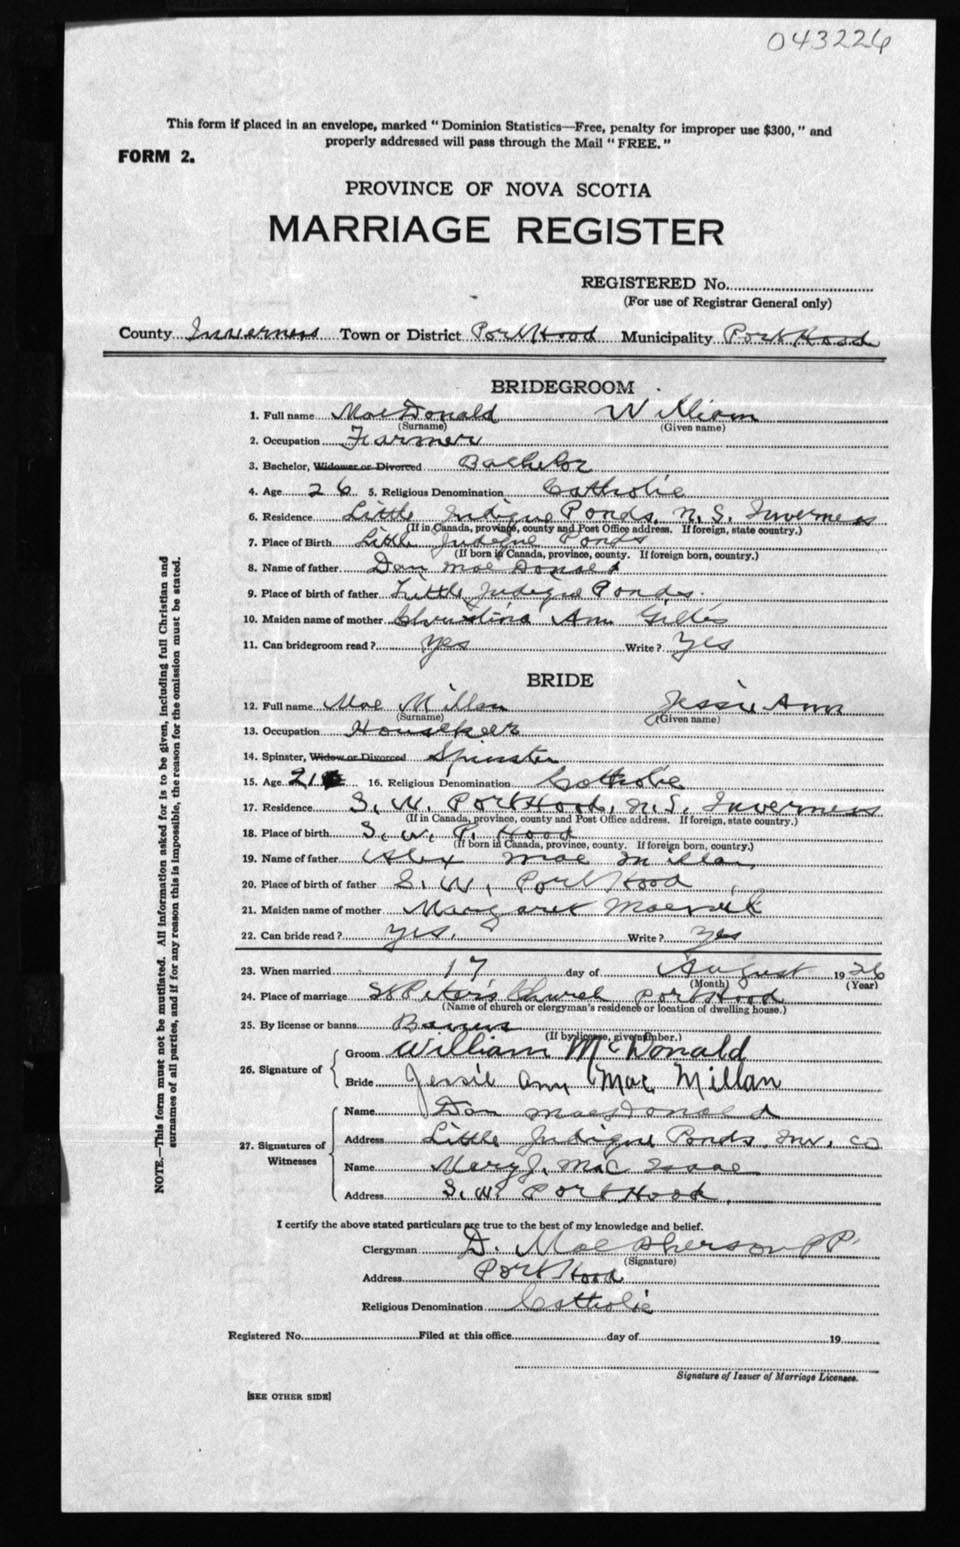 043226
This form if placed in an envelope, marked " Dominion Statistics—Free, penalty for improper use $300, " and
properly addressed will pass through the Mail " FREE. "
FORM 2.
PROVINCE OF NOVA SCOTIA
MARRIAGE REGISTER
REGISTERED No.
(For use of Registrar General only)
County Inverness Town or District Port Hood Municipality Port Hood
BRIDEGROOM
1. Full name MacDonald William
(Surname) (Given name)
2. Occupation Farmer
3. Bachelor, Widower or Divorced Bachelor
4. Age 26 5. Religious Denomination Catholic
6. Residence Little Judique Ponds, N.S. Inverness
(If in Canada, province, county and Post Office address. If foreign, state country.)
7. Place of Birth Little Judique Ponds
(If born in Canada, province, county. If foreign born, country.)
8. Name of father Dan MacDonald
9. Place of birth of father Little Judique Ponds.
10. Maiden name of mother Christina Ann Gillis
11. Can bridegroom read? yes Write? yes
BRIDE
12. Full name Mac Millan Jessie Ann
(Surname) (Given name)
13. Occupation
14. Spinster, Widow or Divorced Spinster
15. Age 21 16. Religious Denomination Catholic
17. Residence S. W. Port Hood, N.S. Inverness
(If in Canada, province, county and Post Office address. If foreign, state country.)
18. Place of birth S. W. P. Hood
(If born in Canada, province, county. If foreign born, country.)
19. Name of father Alex Mac Millan
20. Place of birth of father S. W. Port Hood
21. Maiden name of mother Margaret
22. Can bride read? yes. Write? yes
23. When married 17 day of August 1926
(Month) (Year)
24. Place of marriage St Peter's Church Port Hood
(Name of church or clergyman's residence or location of dwelling house.)
25. By license or banns Banns
(If by license, give number.)
26. Signature of
Groom William McDonald
Bride Jessie Ann Mac Millan
27. Signatures of Witnesses
Name Dan MacDonald
Address Little Judique Ponds, Inv. Co
Name Mary J. Mac Isaac
Address S. W. Port Hood.
I certify the above stated particulars are true to the best of my knowledge and belief.
Clergyman D. MacPherson PP.
(Signature)
Address Port Hood
Religious Denomination Catholic
Registered No. Filed at this office day of 19
Signature of Issuer of Marriage Licenses.
[SEE OTHER SIDE]
NOTE.—This form must not be mutilated. All information asked for is to be given, including full Christian and
surnames of all parties, and if for any reason this is impossible, the reason for the omission must be stated.